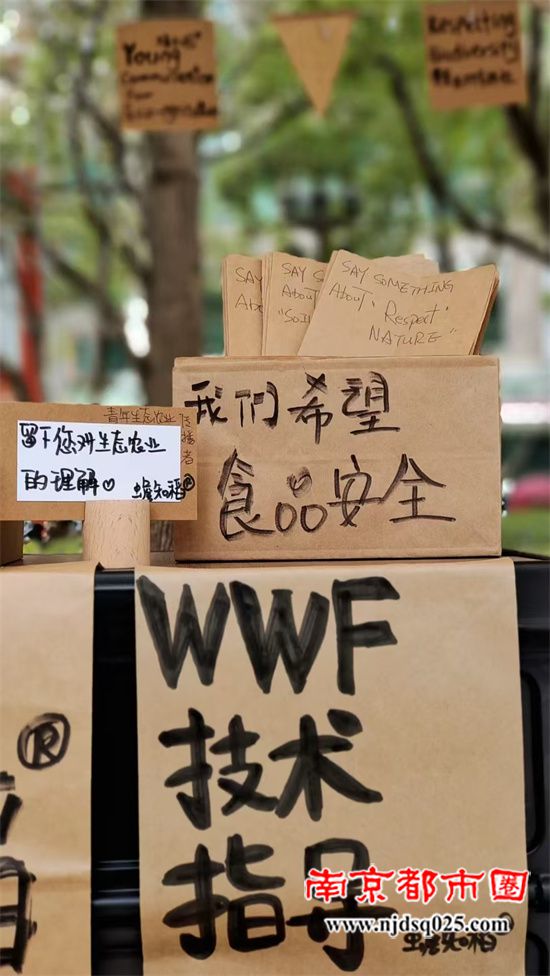 Young
Communicator
for
Eco-agriculture
Respecting
Biodiversity
SAY
About
SAY S
About
"SoIl
SAY SOMETHING
About '
Respect
NATURE"
青年生态农业传播者
留下您对生态农业
的理解♡
蟾知稻®
我们希望
食品安全
WWF
技术
指导
®
南京都市圈
www.njdsq025.com
蟾知稻®